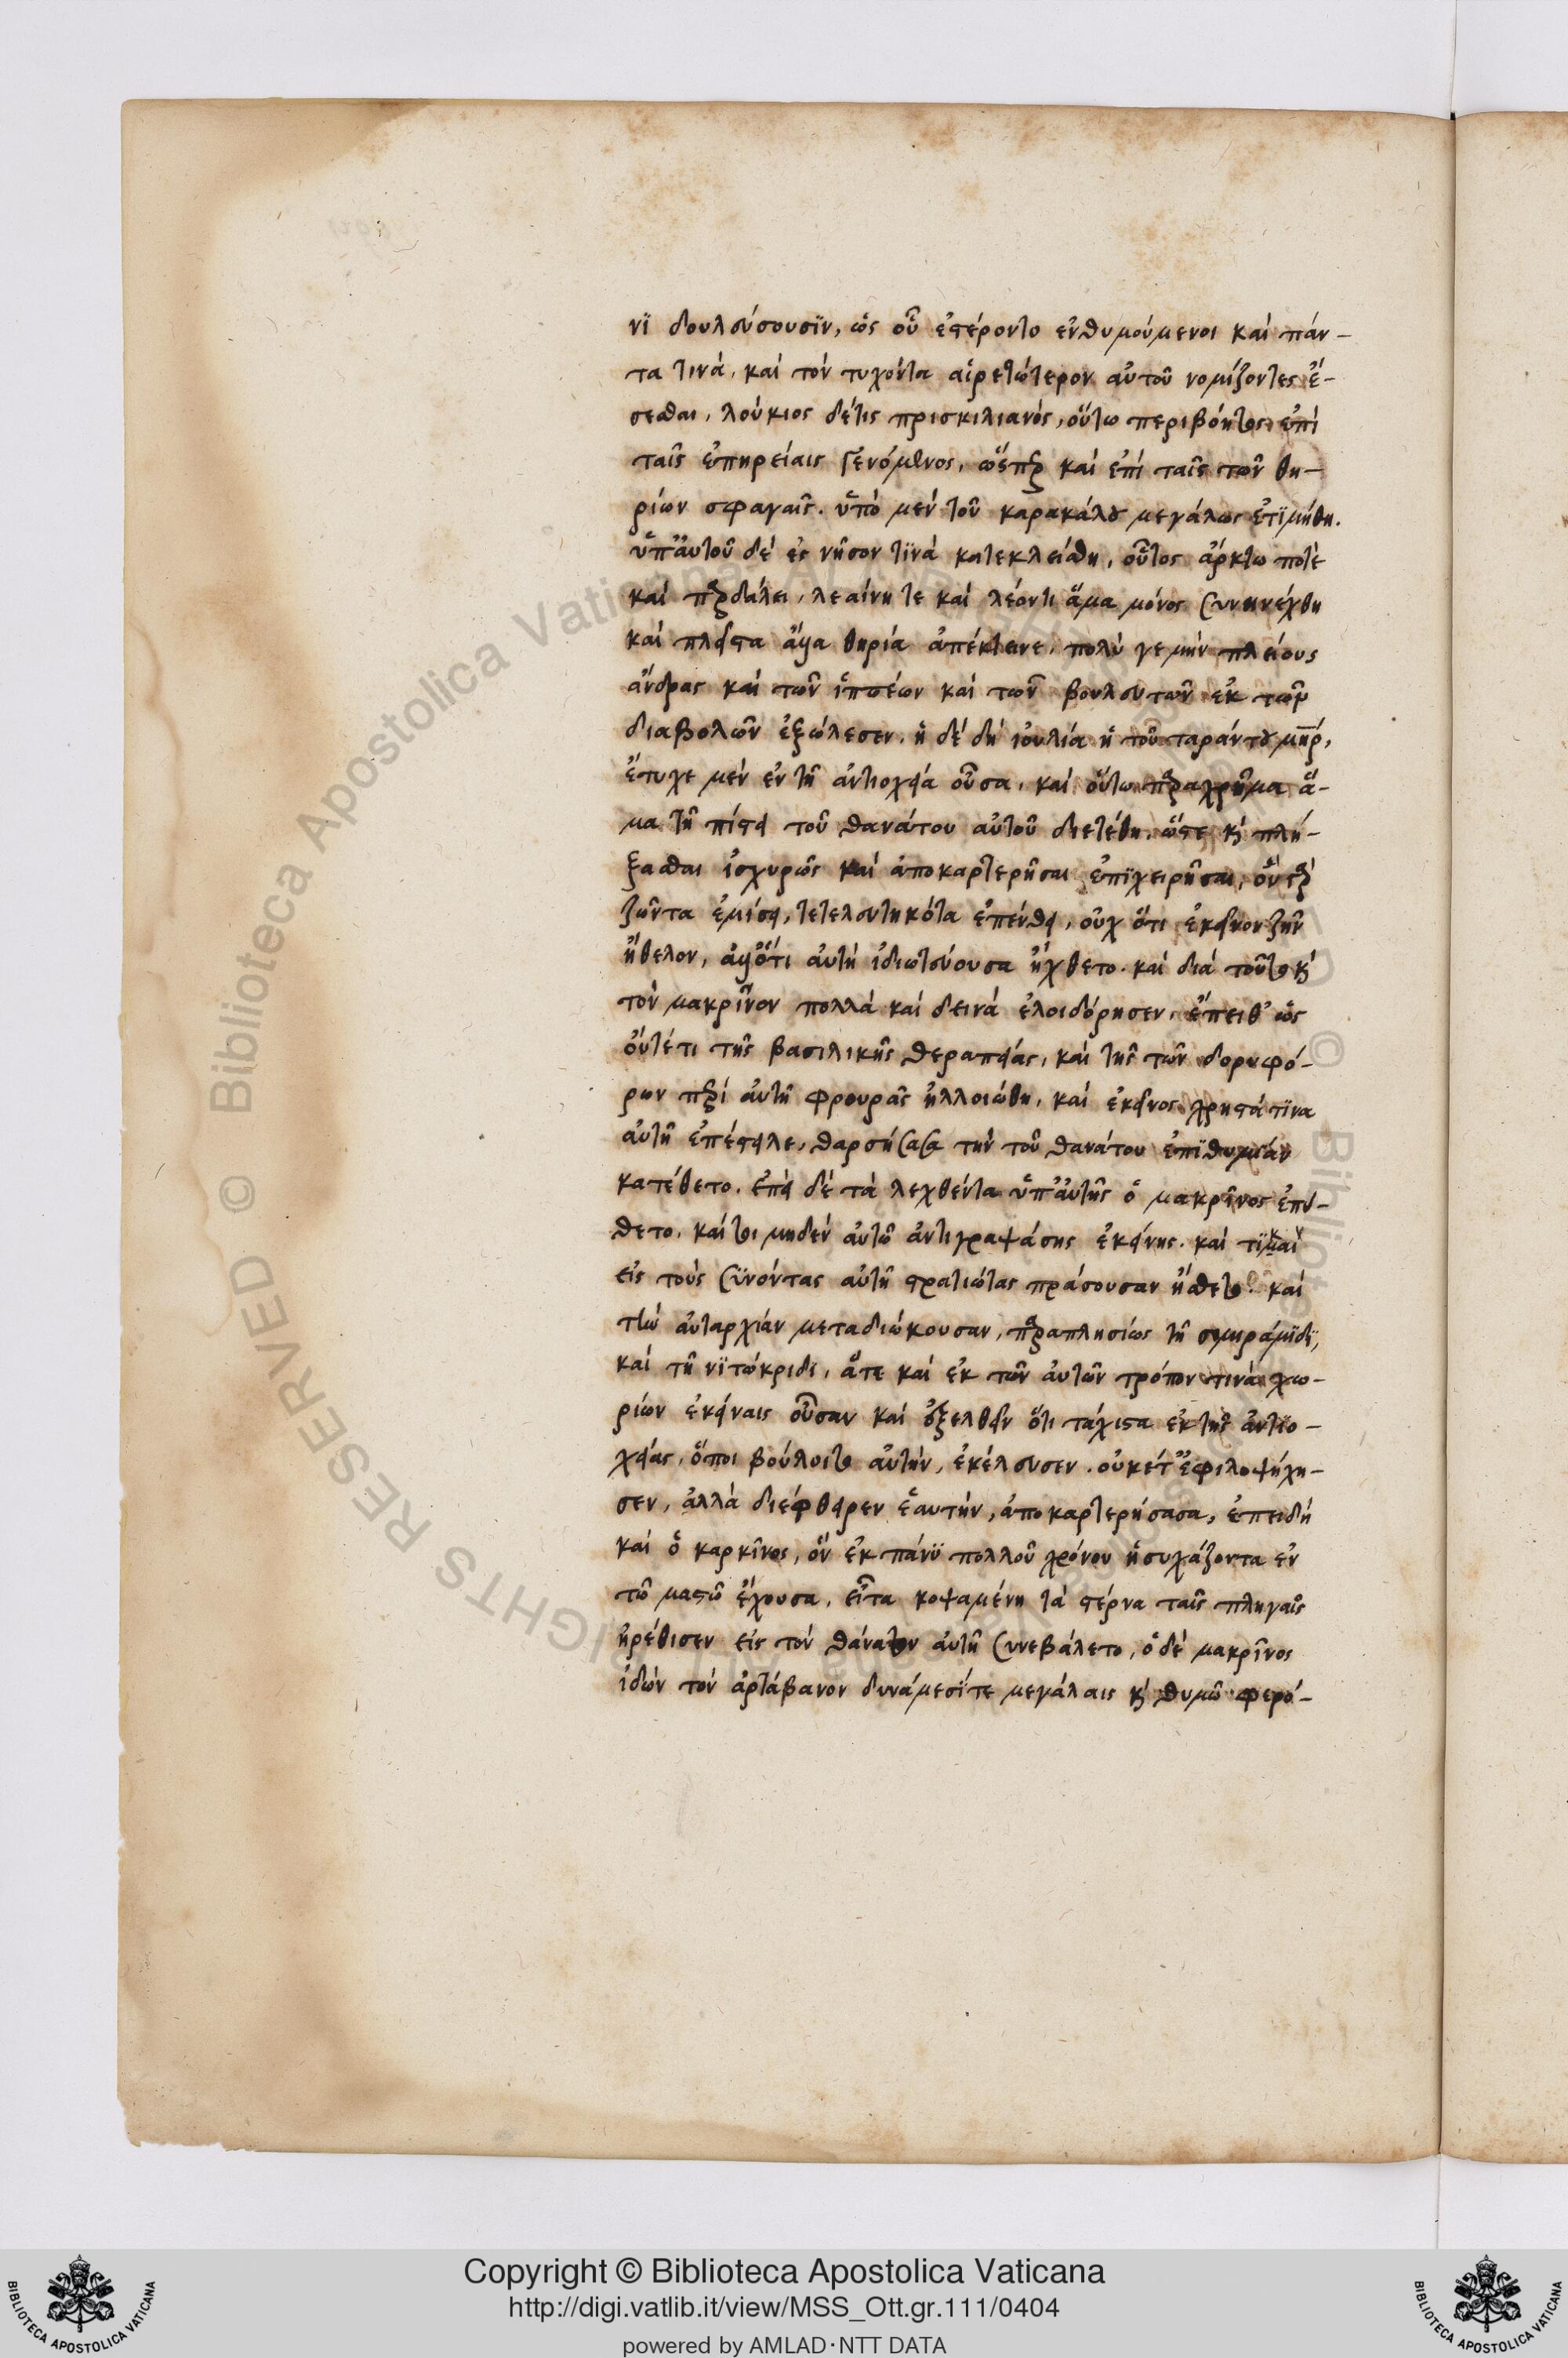 νϊ δουλεύσουσϊν, ὡς οὖ ἐστέροντο ἐνθυμούμενοι καὶ πάν-
τα τινὰ, καὶ τὸν τυχόντα αἱρετώτερον αὐτοῦ νομίζοντες ἔ-
σεσθαι. λούκιος δέτις πρισκιλιανὸς, οὕτω περιβόητος ἐπὶ
ταῖς ἐπηρείαις γενόμενος, ὥσπερ καὶ ἐπὶ ταῖς τῶν θη-
ρίων σφαγαῖς. ὑπὸ μὲν τοῦ καρακάλου μεγάλως ἐτϊμήθη.
ὑπ' αὐτοῦ δὲ ἐς νῆσον τϊνὰ κατεκλείσθη, οὗτος ἄρκτω ποτὲ
καὶ παρδάλει, λεαίνη τε καὶ λέοντι ἅμα μόνος συνηνέχθη
καὶ πλεῖστα ἄλλα θηρία ἀπέκτεινε. πολὺ γε μὴν πλείους
ἄνδρας καὶ τῶν ἱππέων καὶ τῶν βουλευτῶν ἐκ τῶν
διαβολῶν ἐξώλεσεν. ἡ δὲ δὴ ἰουλία ἡ τοῦ ταράντου μηρ,
ἔτυχε μὲν ἐν τῆ ἀντιοχεία οὖσα, καὶ οὕτω παραχρῆμα ἅ-
μα τῆ πίστει τοῦ θανάτου αὐτοῦ διετέθη, ὥστε καὶ πλή-
ξασθαι ἰσχυρῶς καὶ ἀποκαρτερῆσαι ἐπϊχειρῆσαι, οὗπερ
ζῶντα ἐμίσει, τετελευτηκότα ἐπένθει, οὐχ ὅτι ἐκεῖνον ζῆν
ἤθελον, ἀλλ' ὅτι αὐτὴ ἰδιωτεύουσα ἤχθετο. καὶ διὰ τοῦτο καὶ
τὸν μακρῖνον πολλὰ καὶ δεινὰ ἐλοιδόρησεν. ἔπειθ' ὡς
οὔτέτι τῆς βασιλικῆς θεραπείας, καὶ τῆς τῶν δορυφό-
ρων περὶ αὐτὴ φρουρᾶς ἠλλοιώθη, καὶ ἐκεῖνος χρηστά τϊνα
αὐτῆ ἐπέστειλε, θαρσήσασα τὴν τοῦ θανάτου ἐπϊθυμϊάν
κατέθετο. ἐπεὶ δὲ τὰ λεχθέντα ὑπ' αὐτῆς ὁ μακρῖνος ἐπύ-
θετο. καίτοι μηδὲν αὐτῶ ἀντιγραψάσης ἐκείνης. καὶ τϊ καὶ
εἰς τοὺς συνόντας αὐτῆ στρατιώτας πράσουσαν ἤσθετο. καὶ
τὴν αὐταρχίαν μεταδιώκουσαν, παραπλησίως τῆ σεμιράμϊδϊ,
καὶ τῆ νϊτώκριδι, ἅτε καὶ ἐκ τῶν αὐτῶν τρόπον τινὰ χω-
ρίων ἐκείναις οὖσαν καὶ ἐξελθεῖν ὅτι τάχιστα ἐκ τῆς ἀντϊο-
χείας, ὅποι βούλοιτο αὐτὴν, ἐκέλευσεν. οὐκέτ' ἐφιλοψύχη-
σεν, ἀλλὰ διέφθειρεν ἑαυτὴν, ἀποκαρτερήσασα, ἐπειδὴ
καὶ ὁ καρκῖνος, ὃν ἐκ πάνϋ πολλοῦ χρόνου ἡσυχάζοντα ἐν
τῶ μαστῶ ἔχουσα, εἶτα κοψαμένη τὰ στέρνα ταῖς πληγαῖς
ἠρέθισεν εἰς τὸν θάνατον αὐτῆ συνεβάλετο, ὁ δὲ μακρῖνος
ἰδὼν τὸν ἀρτάβανον δυνάμεσϊτε μεγάλαις καὶ θυμῶ φερό-
Copyright © Biblioteca Apostolica Vaticana
http://digi.vatlib.it/view/MSS_Ott.gr.111/0404
powered by AMLAD·NTT DATA